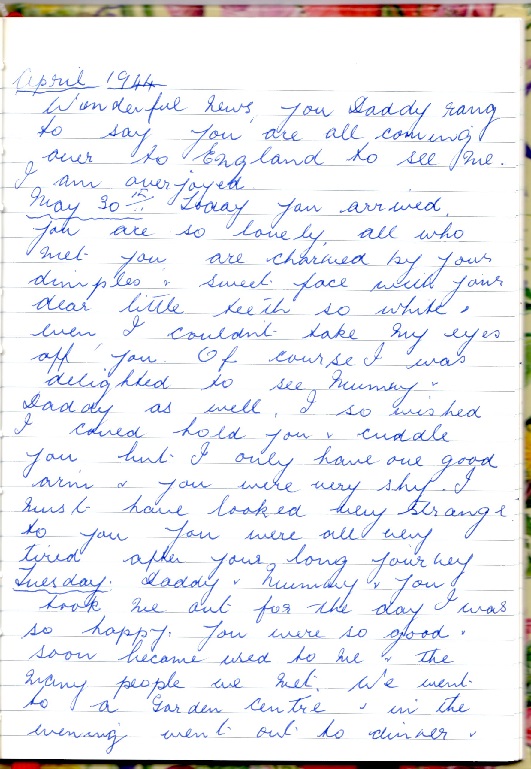 April 1944
Wonderful news, you Daddy rang
to say you are all coming
over to England to see me.
I am overjoyed.
May 30th Today you arrived,
you are so lovely, all who
met you are charmed by your
dimples & sweet face with your
dear little teeth so white &
even I couldn't take my eyes
off you. Of course I was
delighted to see Mummy &
Daddy as well. I so wished
I could hold you & cuddle
you but I only have one good
arm & you were very shy. I
must have looked very strange
to you you were all very
tired after your long journey
Tuesday. Daddy & Mummy & you
took me out for the day I was
so happy. you were so good &
soon became used to me & the
many people we met. We went
to a Garden Centre & in the
evening went out to dinner &